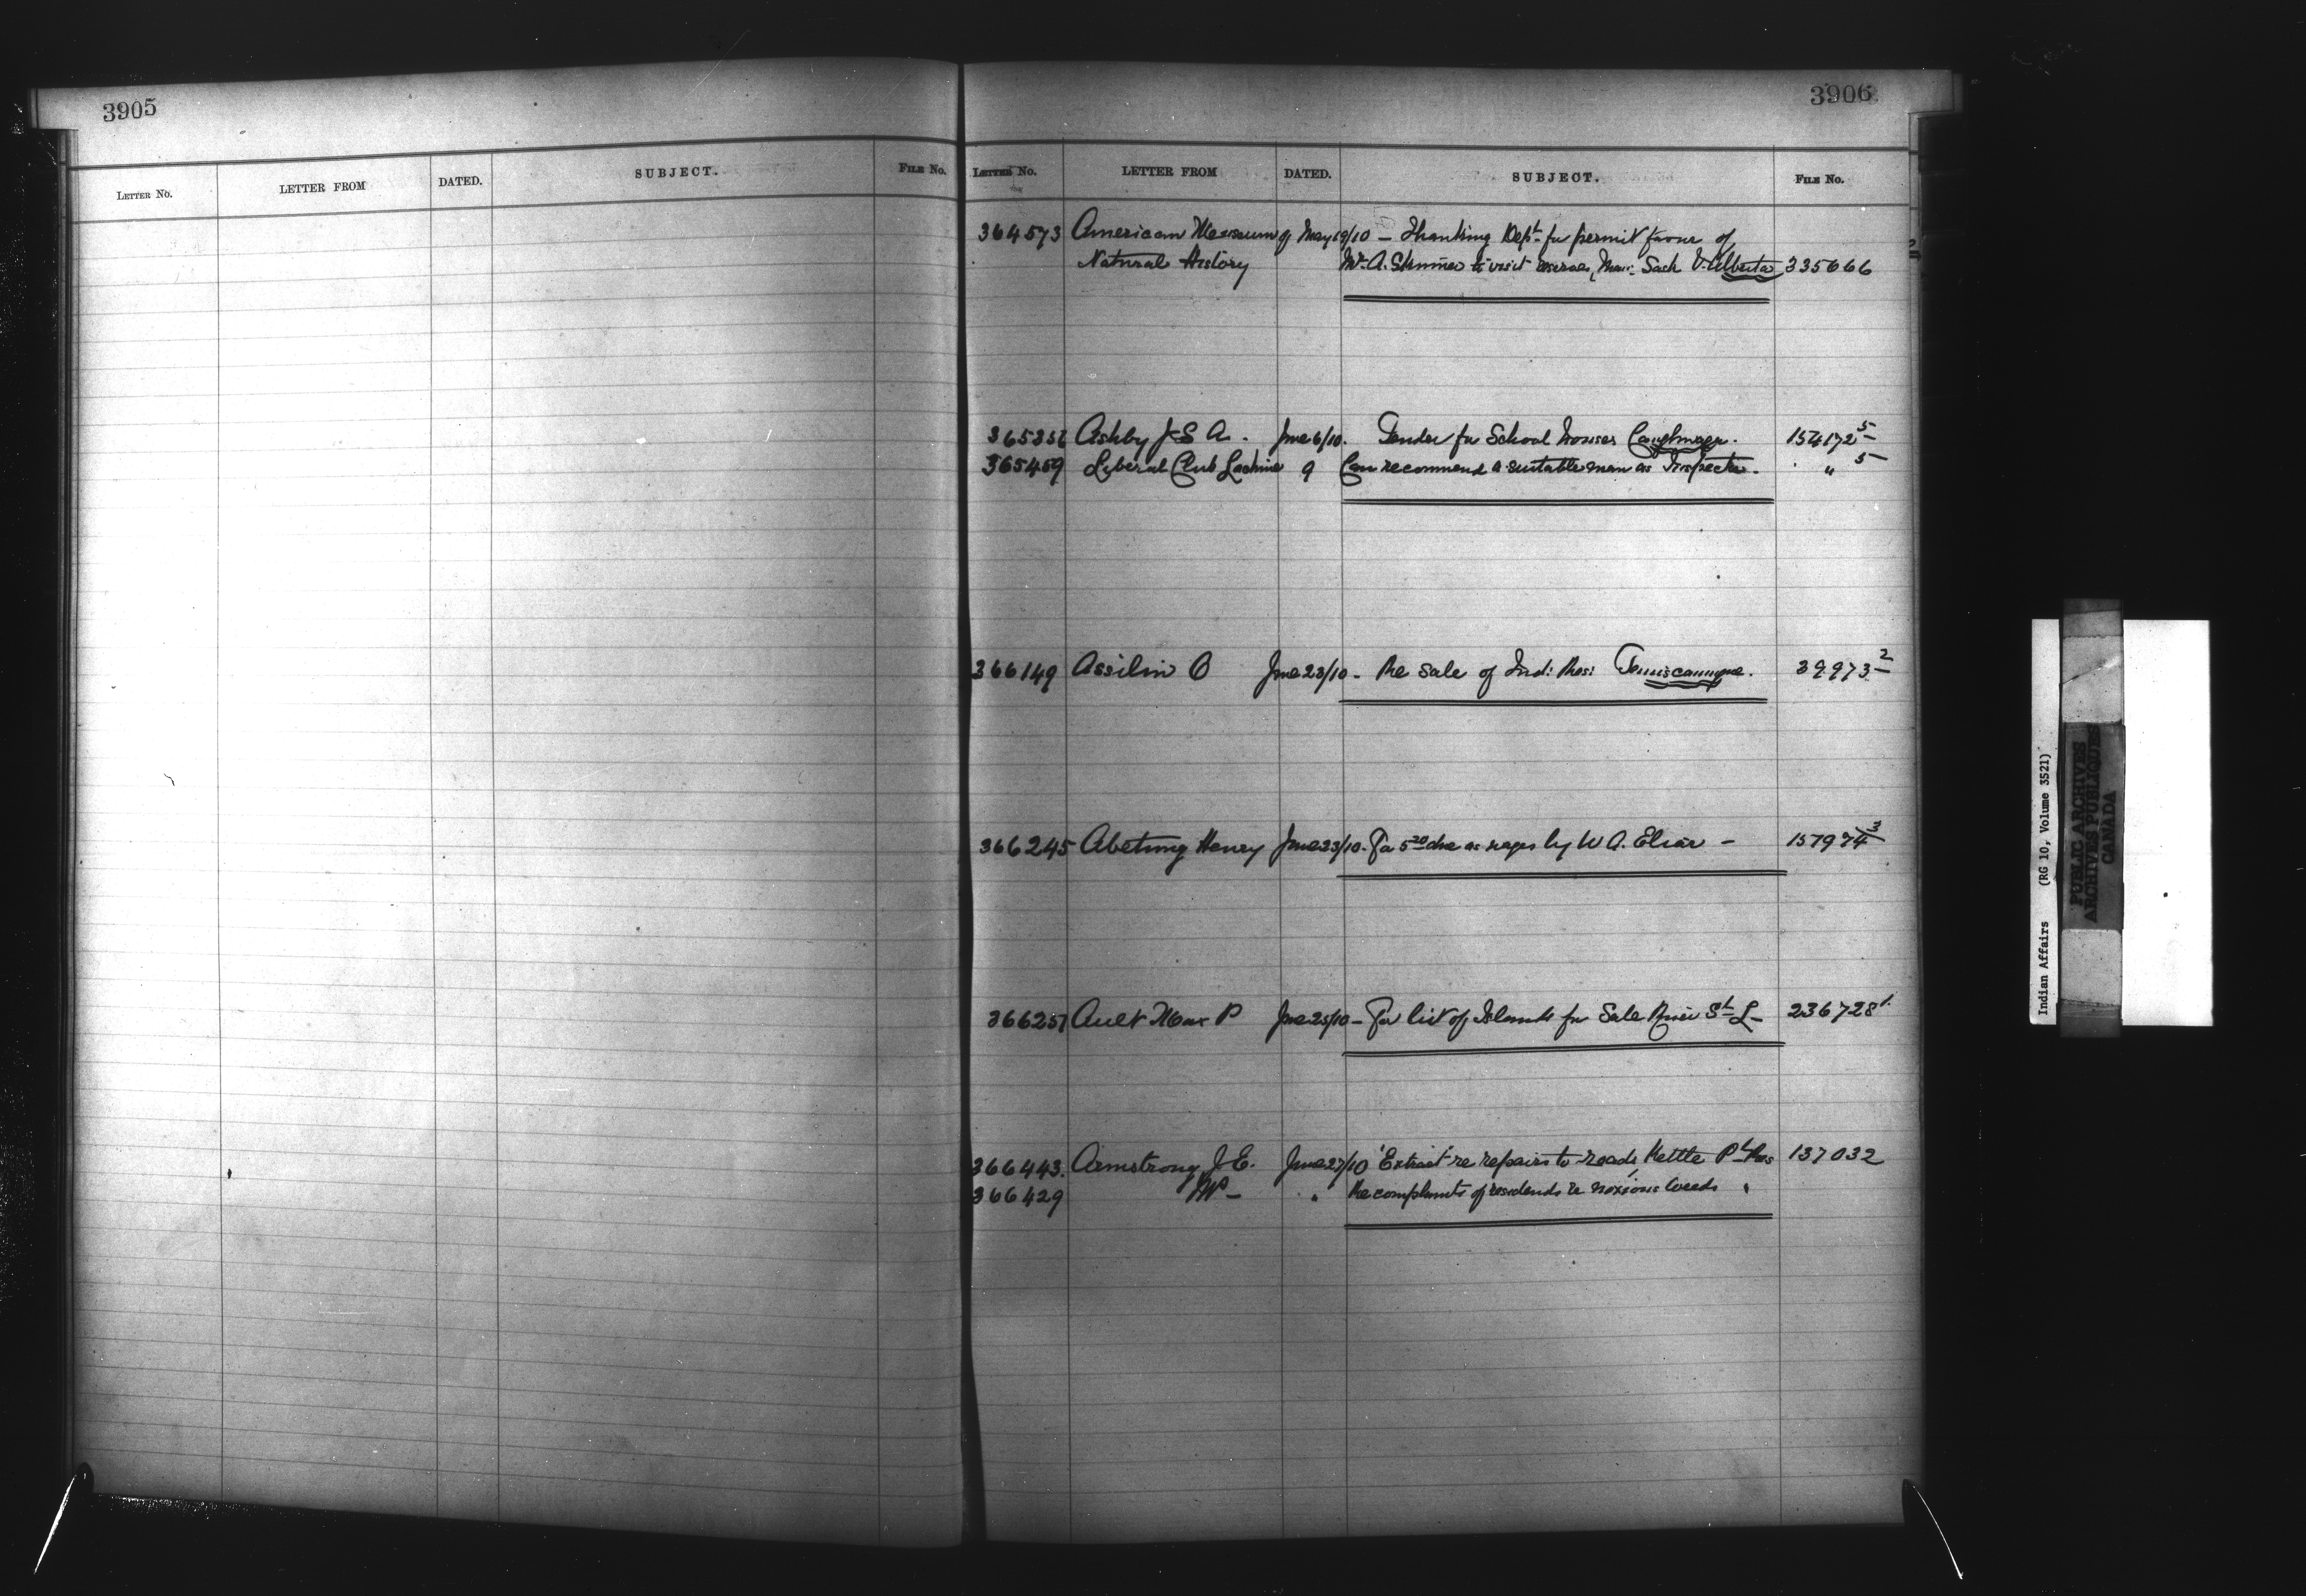 3905
LETTER No. LETTER FROM DATED. SUBJECT. FILE No.
3906
LETTER No. LETTER FROM DATED. SUBJECT. FILE No.
364573 American Museum of May 19/10 — Thanking Dept for permit favor of
Natural History Mr. A. Skinner to visit reserves, Man: Sask & Alberta 335666
Ashby J S A. June 6/10. Tender for School houses Caughnawaga. 154172 5
365459 Liberal Club Lachine 9 Can recommend a suitable man as Inspector. " 5
366149 Assilin O June 23/10 - Re sale of Ind: Res: Temiscamingue. 39973 2
366245 Abetung Henry June 23/10. For 5 20 due as wages by W A. 157974 3
366257 Ault Max P June 25/10 - For list of Islands for Sale River St L - 236728 1.
366443. Armstrong J. E. June 27/10 'Extract' re repairs to roads, Kettle Pt Res 137032
366429 MP - " Re complaints of residents re noxious weeds "
Indian Affairs (RG 10, Volume 3521)
PUBLIC ARCHIVES
ARCHIVES PUBLIQUES
CANADA